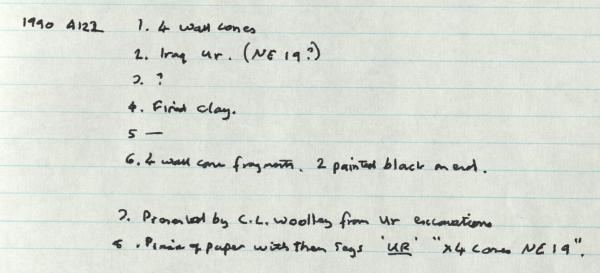 1990 A122 1. 4 wall cones
2. Iraq Ur. (NE 19?)
3. ?
4. Fired clay.
5 —
6. 4 wall cone fragments. 2 painted black on end.
7. Presented by C.L. Woolley from Ur excavations
8. Piece of paper with them says 'UR' "x4 cones NE 19".